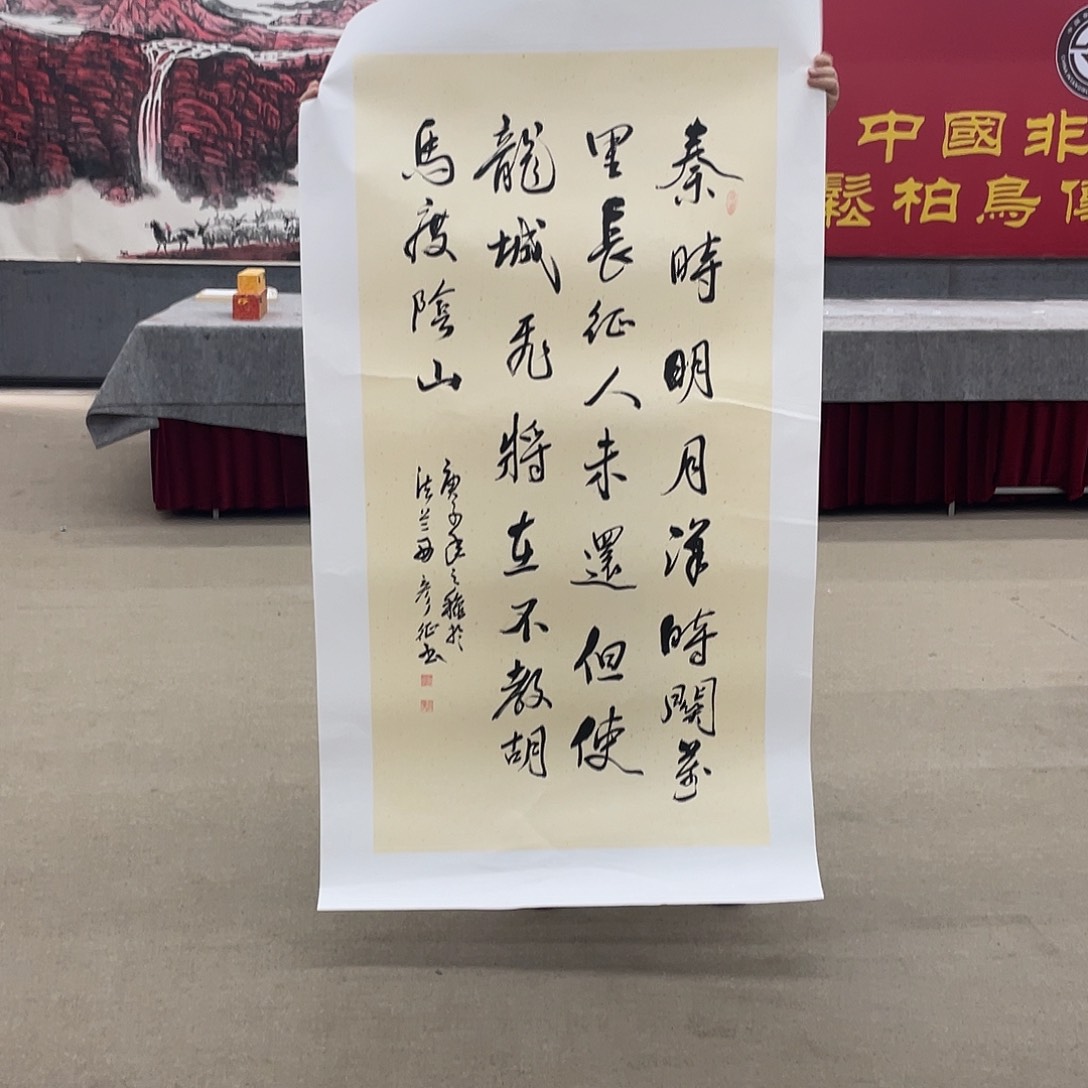 秦時明月漢時關萬
里長征人未還但使
龍城飛將在不教胡
馬度陰山
庚子年之
法兰
征书
中國非
鬆柏鳥傳